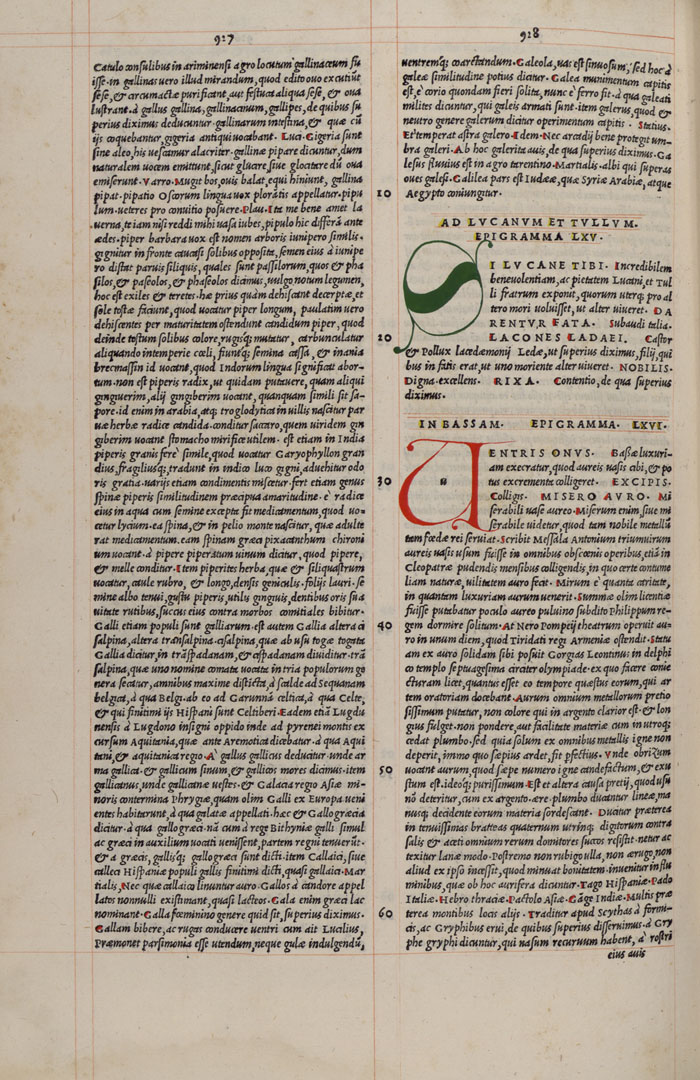 927
Catulo consulibus in ariminensi agro locutum gallinaceum fu
isse. in gallinas uero illud mirandum, quod edito ouo excutiũt
sese, & circumactæ purificant, aut festuca aliqua sese, & oua
lustrant. à gallus gallina, gallinaceum, gallipes, de quibus su
perius diximus deducuntur. gallinarum intestina, & quæ cũ
ijs coquebantur, gigeria antiqui uocabant. Luci. Gigeria sunt
sine aleo, his uescamur alacriter. gallinæ pipare dicuntur, dum
naturalem uocem emittunt, sicut gluare, siue glocitare dũ oua
emiserunt. Varro. Mugit bos, ouis balat, equi hiniunt, gallina
pipat. pipatio Oscorum lingua uox ploratis appellatur. pipu
lum ueteres pro conuitio posuere. Plau. Ita me bene amet la
uerna, te iam nisi reddi mihi uasa iubes, pipulo hic differã ante
ædes. piper barbara uox est nomen arboris iunipero similis.
gignitur in fronte caucasi solibus opposita, semen eius à iunipe
ro distat paruis siliquis, quales sunt passilorum, quos & pha
silos, & paseolos, & phaseolos dicimus, uulgo notum legumen,
hoc est exiles & teretes. hæ prius quàm dehiscant decerptæ, et
sole tostæ faciunt, quod uocatur piper longum, paulatim uero
dehiscentes per maturitatem ostendunt candidum piper, quod
deinde tostum solibus colore, rugisq; mutatur, carbunculatur
aliquando intemperie cœli, fiuntq; semina cassa, & inania
brecmassin id uocant, quod Indorum lingua significat abor-
tum. non est piperis radix, ut quidam putauere, quam aliqui
zingiuerim, alij gingiberim uocant, quanquam simili sit sa-
pore. id enim in arabia, atq; troglodytica in uillis nascitur par
uæ herbæ radice candida. conditur saccaro, quem uiridem gin
giberim uocant stomacho mirifice utilem. est etiam in India
piperis granis fere simile, quod uocatur Garyophyllon gran
dius, fragiliusq;. tradunt in indico luco gigni, aduehitur odo
ris gratia. uarijs etiam condimentis miscetur. fert etiam genus
spinæ piperis similitudinem præcipua amaritudine. è radice
eius in aqua cum semine excepta fit medicamentum, quod uo-
catur lycium. ea spina, & in pelio monte nascitur, quæ adulte
rat medicamentum. eam spinam græci pixacanthum chironi
um uocant. à pipere piperatum uinum dicitur, quod pipere,
& melle conditur. Item piperites herba, quæ & siliquastrum
uocatur, caule rubro, & longo, densis geniculis. folijs lauri. se
mine albo tenui, gustu piperis, utilis gingiuis, dentibus oris sua
uitate rutibus, succus eius contra morbos comitiales bibitur.
Galli etiam populi sunt galliarum. est autem Gallia altera ci
salpina, altera transalpina. cisalpina, quæ ab usu togæ togata
Gallia dicitur, in trãspadanam, & cispadanam diuiditur. trã
salpina, quæ uno nomine comata uocata in tria populorum ge
nera secatur, amnibus maxime distincta, à scalde ad Sequanam
belgica, à qua Belgi. ab eo ad Garunnã celtica, à qua Celte,
& qui finitimi ijs Hispani sunt Celtiberi. Eadem etiã Lugdu
nensis à Lugdono insigni oppido inde ad pyrenei montis ex
cursum Aquitania, quæ ante Aremotica dicebatur. à qua Aqui
tani, & aquitanica regio. A gallus gallicus deducitur. unde ar
ma gallica. & gallicum sinum, & gallicos mores dicimus. item
gallicatnus, unde gallicinæ uestes. & Galacia regio Asiæ mi-
noris contermina Phrygiæ, quam olim Galli ex Europa ueni
entes habitarunt, à qua galatæ appellati. hæc & Gallogræcia
dicitur. à qua gallogræci. nã cum à rege Bithyniæ galli simul
ac græci in auxilium uocati uenissent, partem regni tenuerũt.
& a græcis, gallisq; gallogræci sunt dicti. item Callaici, siue
callæci Hispaniæ populi gallis finitimi dicti, quasi gallaici. Mar
tialis. Nec quæ callaico linuntur auro. Gallos à candore appel
latos nonnulli existimant, quasi lacteos. Gala enim græci lac
nominant. Galla fœminino genere quid sit, superius diximus.
Gallam bibere, ac rugas conducere uentri cum ait Lucilius,
Præmonet parsimonia esse utendum, neque gulæ indulgendũ,
928
uentremq; coarctandum. Galeola, uas est sinuosum, sed hoc à
galeæ similitudine potius dicitur. Galea munimentum capitis
est, è corio quondam fieri solita, nunc è ferro fit. à qua galeati
milites dicuntur, qui galeis armati sunt. item galerus, quod &
neutro genere galerum dicitur operimentum capitis. Statius.
Et temperat astra galero. Idem. Nec arcadij bene protegit um-
bra galeri. Ab hoc galerita auis, de qua superius diximus. Ga
lesus fluuius est in agro tarentino. Martialis. albi qui superas
oues galesi. Galilea pars est Iudææ, quæ Syriæ Arabiæ, atque
10 Aegypto coniungitur.
AD LVCANVM ET TVLLVM.
EPIGRAMMA LXV.
SI LVCANE TIBI. Incredibilem
beneuolentiam, ac pietatem Lucani, et Tul
li fratrum exponit, quorum uterq; pro al
tero mori uoluisset, ut alter uiueret. DA
RENTVR FATA. Subaudi talia.
20 LACONES LADAEI. Castor
& Pollux lacedæmonij Ledæ, ut superius diximus, filij, qui
bus in fatis erat, ut uno moriente alter uiueret. NOBILIS.
Digna. excellens. RIXA. Contentio, de qua superius
diximus.
IN BASSAM. EPIGRAMMA. LXVI.
VENTRIS ONVS. Bassæ luxuri-
am execratur, quod aureis uasis cibi, & po
30 u tus excrementa colligeret. EXCIPIS.
Colligis. MISERO AVRO. Mi
serabili uase aureo. Miserum enim, siue mi
serabile uidetur, quod tam nobile metallũ
tam fœdæ rei seruiat. Scribit Messala Antonium triumuirum
aureis uasis usum fuisse in omnibus obscœnis operibus, etiã in
Cleopatræ pudendis mensibus colligendis, in quo certe contume
liam naturæ, uilitatem auro fecit. Mirum è quanta caritate,
in quantam luxuriam aurum uenerit. Summæ olim licentiæ
fuisse putabatur poculo aureo puluino subdito Philippum re-
40 gem dormire solitum. At Nero Pompeij theatrum operuit au-
ro in unum diem, quod Tiridati regi Armeniæ ostendit. Statu
am ex auro solidam sibi posuit Gorgias Leontinus in delphi
co templo septuagesima circiter olympiade. ex quo facere conie
cturam licet, quantus esset eo tempore quæstus eorum, qui ar
tem oratoriam docebant. Aurum omnium metallorum pretio
sissimum putatur, non colore qui in argento clarior est. & lon
gius fulget. non pondere, aut facilitate materiæ cum in utroq;
cedat plumbo. sed quia solum ex omnibus metallis igne non
deperit, immo quo sæpius ardet, fit pfectius. Vnde obrizum
50 uocant aurum, quod sæpe numero igne candefactum, & exu
stum est. ideoq; purissimum. Est et altera causa precij, quod usu
nõ deteritur, cum ex argento. ære. plumbo ducantur lineæ, ma
nusq; decidente eorum materia sordescant. Ducitur præterea
in tenuissimas bratteas quaternum utrinq; digitorum contra
salis & aceti omnium rerum domitores succos resistit. netur ac
texitur lanæ modo. Postremo non rubigo ulla, non ærugo, non
aliud ex ipso inæssit, quod minuat bonitatem. inuenitur in flu
minibus, quæ ob hoc aurifera dicuntur. Tago Hispaniæ. Pado
Italiæ. Hebro thraciæ. Pactolo Asiæ. Gãge Indiæ. Multis præ
60 terea montibus locis alijs. Traditur apud Scythas à formi-
cis, ac Gryphibus erui, de quibus superius disseruimus. à Gry
phe gryphi dicuntur, qui nasum recuruum habent, à rostri
eius auis